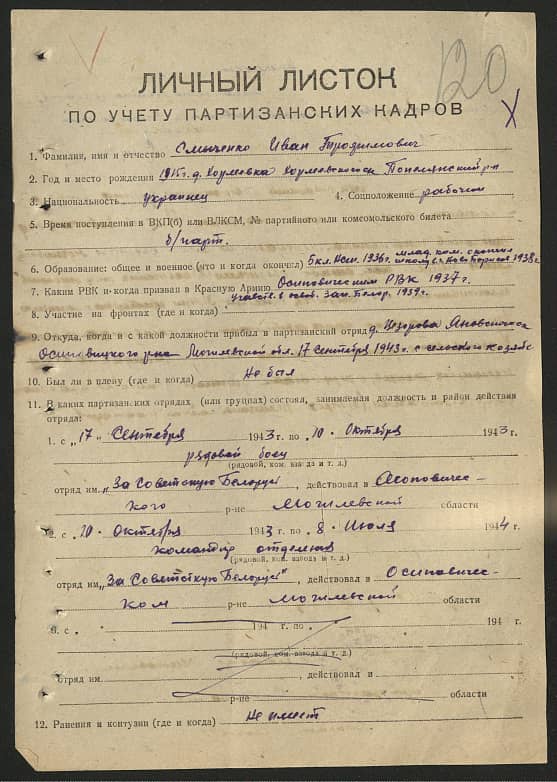 120
ЛИЧНЫЙ ЛИСТОК
ПО УЧЕТУ ПАРТИЗАНСКИХ КАДРОВ
1. Фамилия, имя и отчество Иван Трофимович
2. Год и место рождения 1915г. д. р-н
3. Национальность украинец 4. Соцположение рабочий
5. Время поступления в ВКП(б) или ВЛКСМ, № партийного или комсомольского билета
б/парт.
6. Образование: общее и военное (что и когда окончил) 5 кл. 1936г. млад. ком. 1938г.
7. Каким РВК и когда призван в Красную Армию Осиповическим РВК 1937г.
8. Участие на фронтах (где и когда) участв. в освоб. Зап. Белор. 1939г.
9. Откуда, когда и с какой должности прибыл в партизанский отряд д.
Осиповицкого р-на Могилевской обл. 17 сентября 1943г. с сельского хозяйс
10. Был ли в плену (где и когда) Не был
11. В каких партизан.ких отрядах (или группах) состоял, занимаемая должность и район действия
отряда:
1. с „17„ Сентября 1943 г. по 10. Октября 1943 г.
рядовой боец
(рядовой, ком. взвода и т. д.)
отряд им. „За Советскую Белорус" , действовал в
кого р-не Могилевской области
2. с 20. Октября 1943 г. по 8. Июля 1944 г.
командир отделения
(рядовой, ком. взвода и т. д.)
отряд им. „За Советскую Белорус" , действовал в Осиповичес-
ком р-не Могилевской области
3. с 194 г. по 194 г.
(рядовой, ком. взвода и т. д.)
отряд им. действовал и
р-не области
12. Ранения и контузии (где и когда) Не имеет